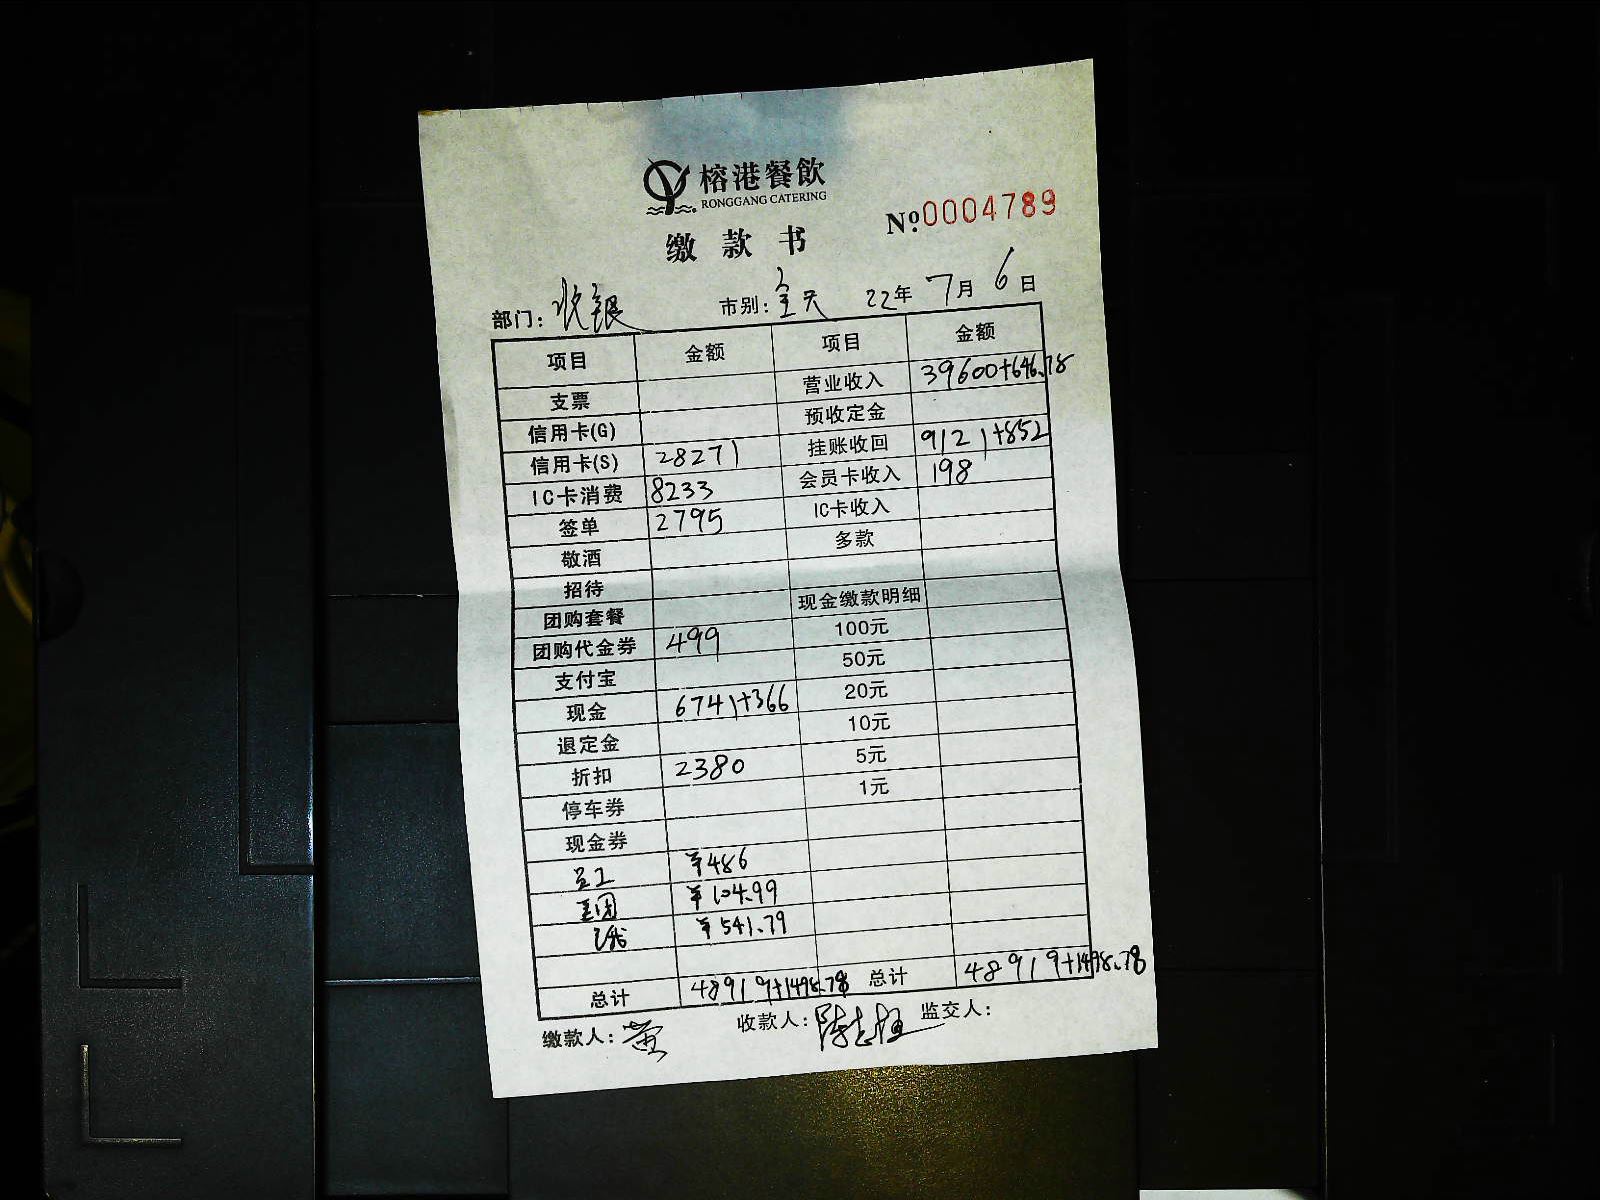 榕港餐飲
RONGGANG CATERING
No.0004789
缴款书
部门：收银 市别：全天 22年7月6日
项目 金额 项目 金额
支票 营业收入 39600+646.78
信用卡(G) 预收定金
信用卡(S) 28271 挂账收回 9121+852
IC卡消费 8233 会员卡收入 198
签单 2795 IC卡收入
敬酒 多款
招待
团购套餐 现金缴款明细
团购代金券 499 100元
支付宝 50元
现金 6741+366 20元
退定金 10元
折扣 2380 5元
停车券 1元
现金券
员工 ¥486
美团 ¥104.99
¥541.79
总计 48919+1498.78 总计 48919+1498.78
缴款人： 收款人：陈志 监交人：